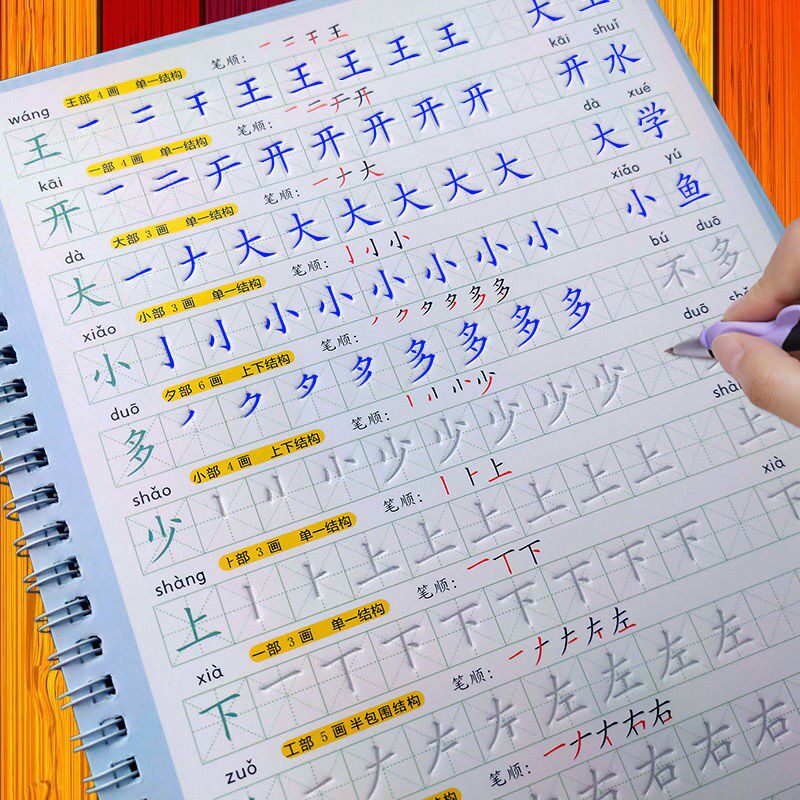 王部 4 画 单一结构 笔顺: 一 二 干 王
wáng
王 一 二 干 王 王 王 王 王 大 王
一部 4 画 单一结构 笔顺: 一 二 于 开 kāi shuǐ
kāi
开 一 二 于 开 开 开 开 开 开 水
大部 3 画 单一结构 笔顺: 一 ナ 大 dà xué
dà
大 一 ナ 大 大 大 大 大 大 大 学
小部 3 画 单一结构 笔顺: 亅 小 小 xiǎo yú
xiǎo
小 亅 小 小 小 小 小 小 小 小 鱼
夕部 6 画 上下结构 笔顺: ノ ク 夕 多 多 多 bú duō
duō
多 ノ ク 夕 多 多 多 多 多 不 多
小部 4 画 上下结构 笔顺: 丨 小 小 少 duō
shǎo
少 丨 小 小 少 少 少 少 少
卜部 3 画 单一结构 笔顺: 丨 卜 上
shàng
上 丨 卜 上 上 上 上 上 上 上
一部 3 画 单一结构 笔顺: 一 丅 下 xià
xià
下 一 丅 下 下 下 下 下 下 下
工部 5 画 半包围结构 笔顺: 一 ナ 左 左 左
zuǒ
左 左 左 左
笔顺: 一 ナ 右 右 右
右 右 右